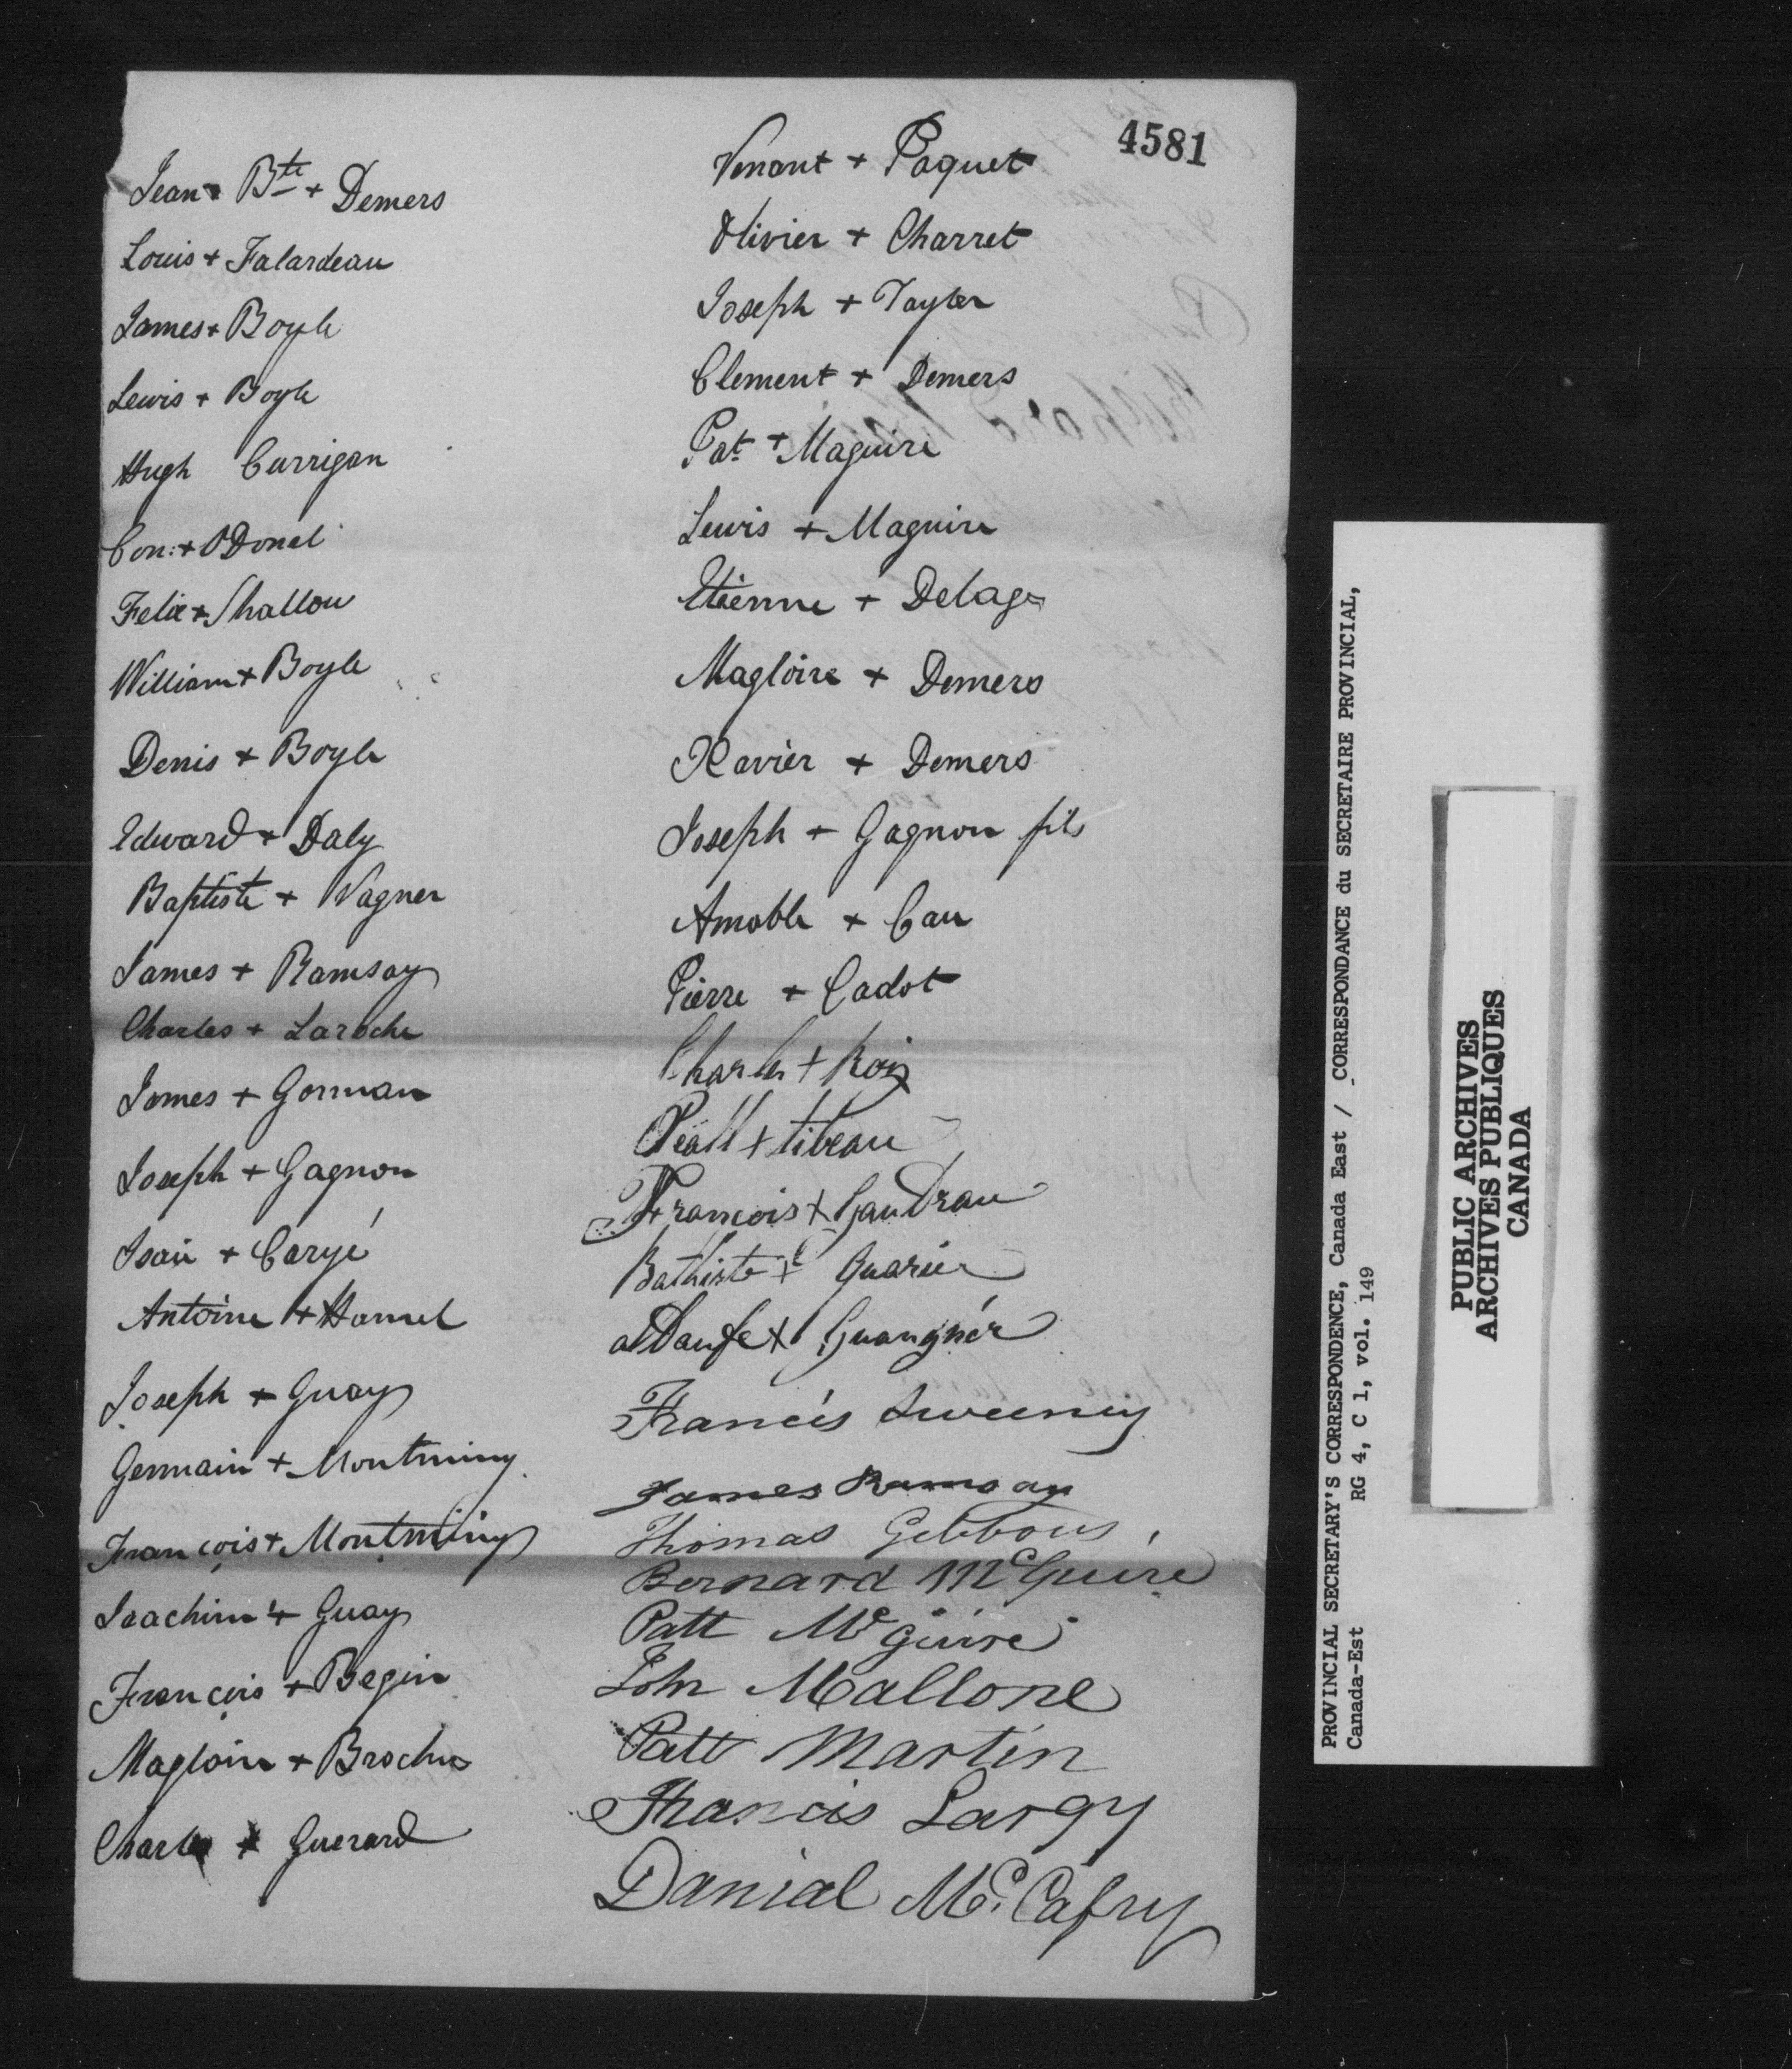 4581
Jean Bte + Demers
Louis + Falardeau
James + Boyle
Lewis + Boyle
Hugh Currigan
Con: + ODonel
Felix + Shallow
William + Boyle
Denis + Boyle
Edward + Daly
Baptiste + Vagner
James + Ramsay
Charles + Laroche
James + Gorman
Joseph + Gagnon
Isaïe + Caryé
Antoine + Hamel
Joseph + Guay
Germain + Montminy
François + Montminy
Joachim + Guay
François + Begin
Magloire + Brochu
Charles + Guerard
Venant + Paquet
Olivier + Charret
Joseph + Tayler
Clement + Demers
Pat + Maguire
Lewis + Maguire
Etienne + Delage
Magloire + Demers
Xavier + Demers
Joseph + Gagnon fils
Amable + Cau
Pierre + Cadot
Charles + Roy
+ tibeau
Francois + Gaudrau
Bathiste + Guarier
+
Francis Sweeney
James Ramsay
Thomas Gibbons
Bernard McGuire
Patt McGuire
John Mallone
Patt Martin
Francis Largy
Danial Mc Cafry
PROVINCIAL SECRETARY'S CORRESPONDENCE, Canada East / CORRESPONDANCE du SECRETAIRE PROVINCIAL,
Canada-Est RG 4, C 1, vol. 149
PUBLIC ARCHIVES
ARCHIVES PUBLIQUES
CANADA